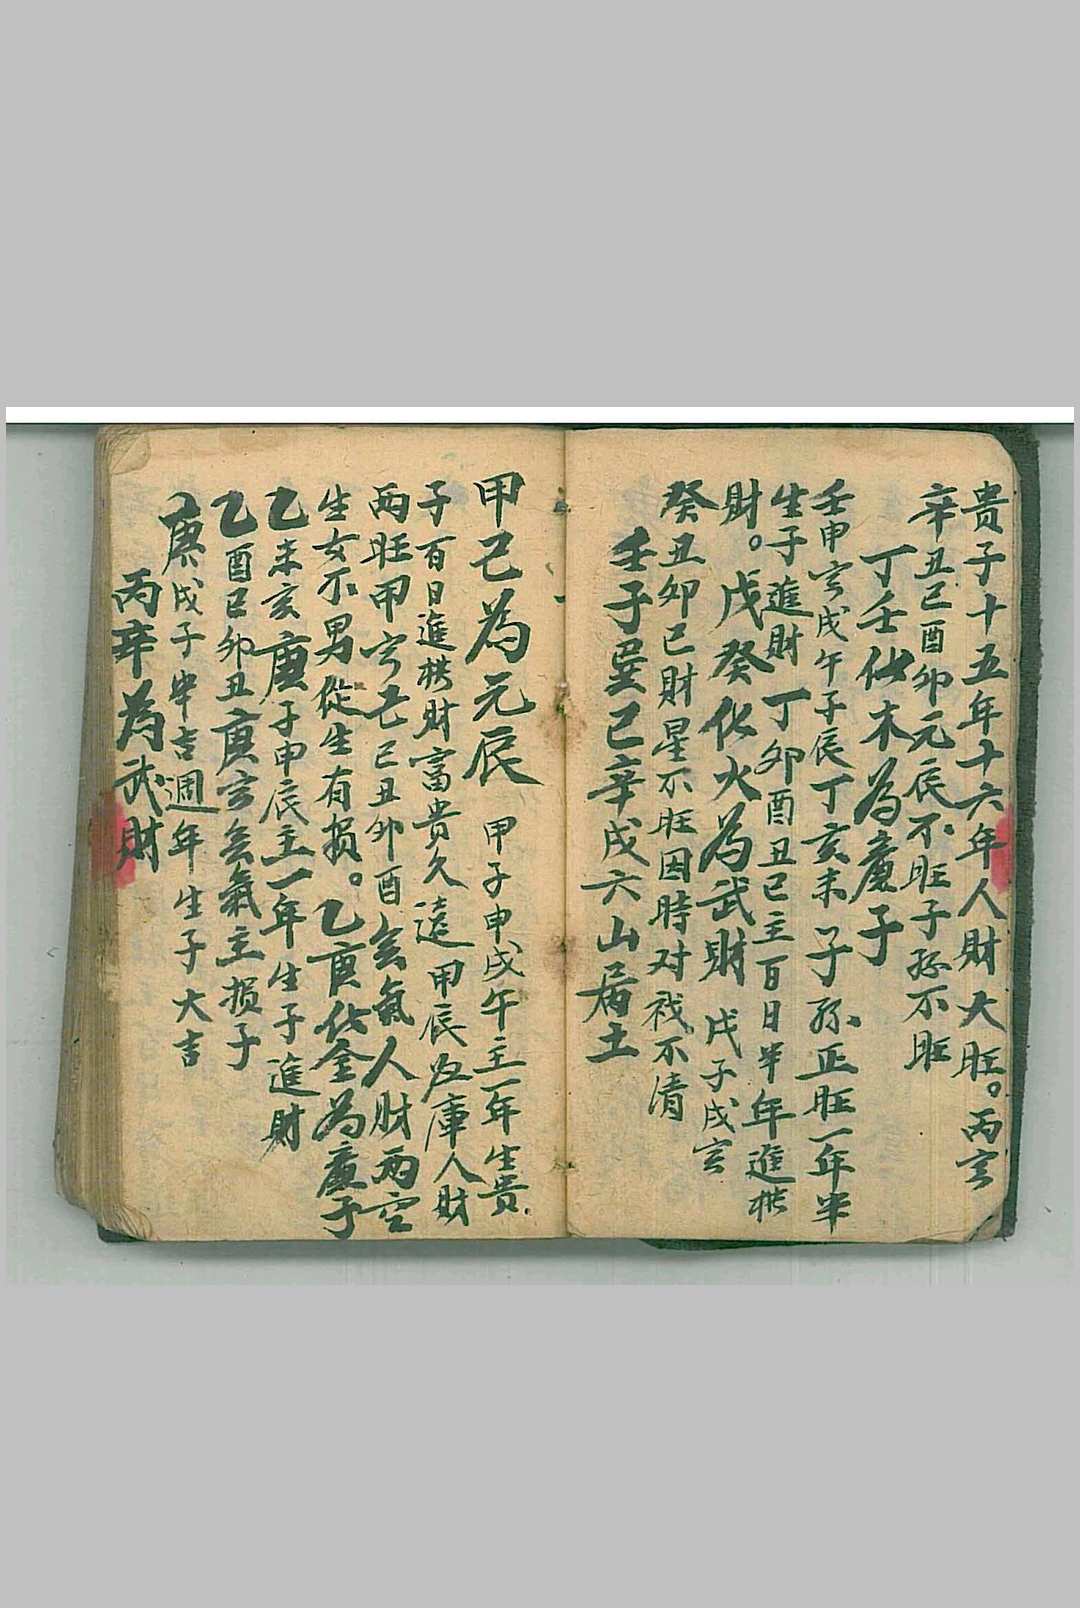 贵子十五年十六年人財大旺。丙亥
辛丑己酉卯元辰不旺子孫不旺
丁壬化木為廉子
壬申亥戌午子辰丁亥未子孫正旺一年半
生子進財丁卯酉丑巳主百日半年進横
財。戊癸化火為武財戊子戌亥
癸丑卯巳財星不旺因時对not不清
壬子巽巳辛戌六山属土
甲己為元辰甲子申戌午主一年生贵
子百日進横財富贵久遠甲辰及庫人財
两旺甲亥己巳丑卯酉炁氣人財两空
生女不男從生有损。乙庚化金為廉子
乙未亥庚子申辰主一年生子進財
乙酉巳卯丑庚亥炁氣主损子
庚戌子半吉週年生子大吉
丙辛為武財